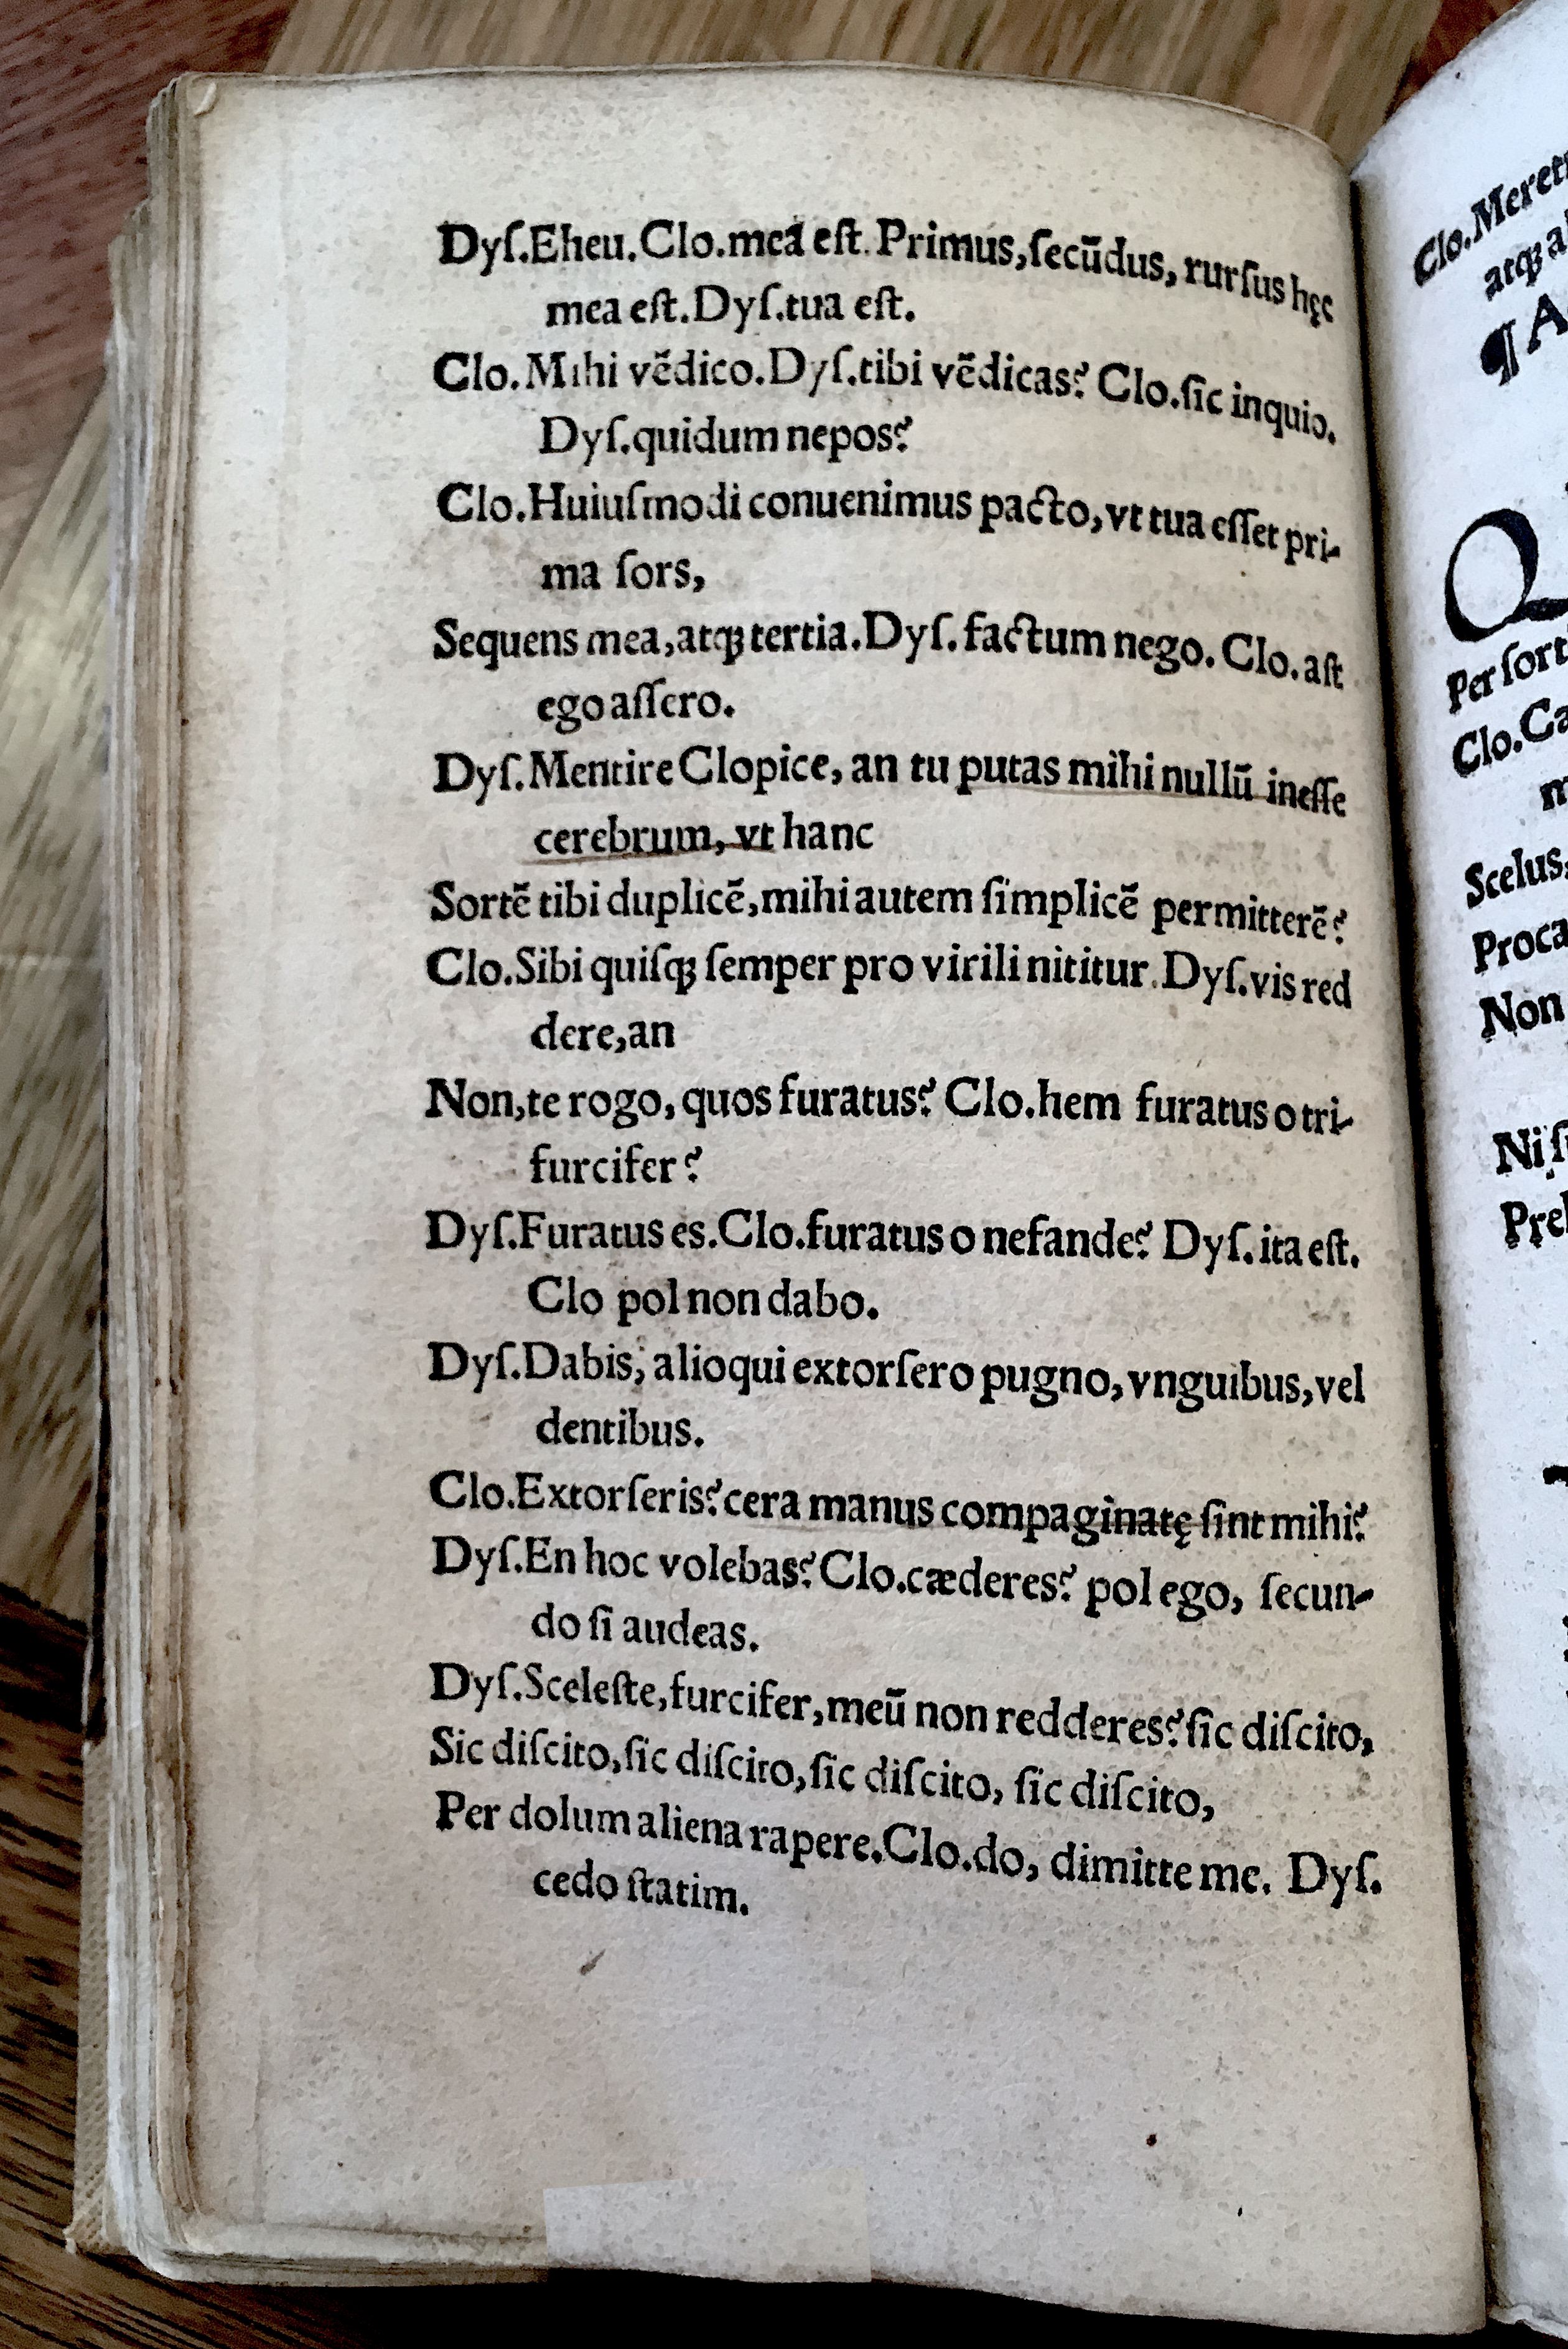 Dyſ.Eheu.Clo.mea eſt. Primus,ſecūdus, rurſus hęc
mea eſt.Dyſ.tua eſt.
Clo.Mihi vēdico.Dyſ.tibi vēdicas? Clo.ſic inquio.
Dyſ.quidum nepos?
Clo.Huiuſmodi conuenimus pacto,vt tua eſſet pri-
ma ſors,
Sequens mea,atqꝫ tertia.Dyſ.factum nego. Clo.aſt
ego aſſero.
Dyſ.Mentire Clopice, an tu putas mihi nullū ineſſe
cerebrum, vt hanc
Sortē tibi duplicē,mihi autem ſimplicē permitterē?
Clo.Sibi quiſqꝫ ſemper pro virili nititur.Dyſ.vis red
dere,an
Non,te rogo, quos furatus? Clo.hem furatus o tri-
furcifer?
Dyſ.Furatus es.Clo.furatus o nefande? Dyſ.ita eſt.
Clo pol non dabo.
Dyſ.Dabis, alioqui extorſero pugno,vnguibus,vel
dentibus.
Clo.Extorſeris?cera manus compaginatę ſint mihi?
Dyſ.En hoc volebas?Clo.cæderes? pol ego, ſecun-
do ſi audeas.
Dyſ.Sceleſte,furcifer,meū non redderes?ſic diſcito,
Sic diſcito,ſic diſcito,ſic diſcito, ſic diſcito,
Per dolum aliena rapere.Clo.do, dimitte me. Dyſ.
cedo ſtatim.
Clo.
¶ A
Q
Per
Clo.
Scelus,
Non